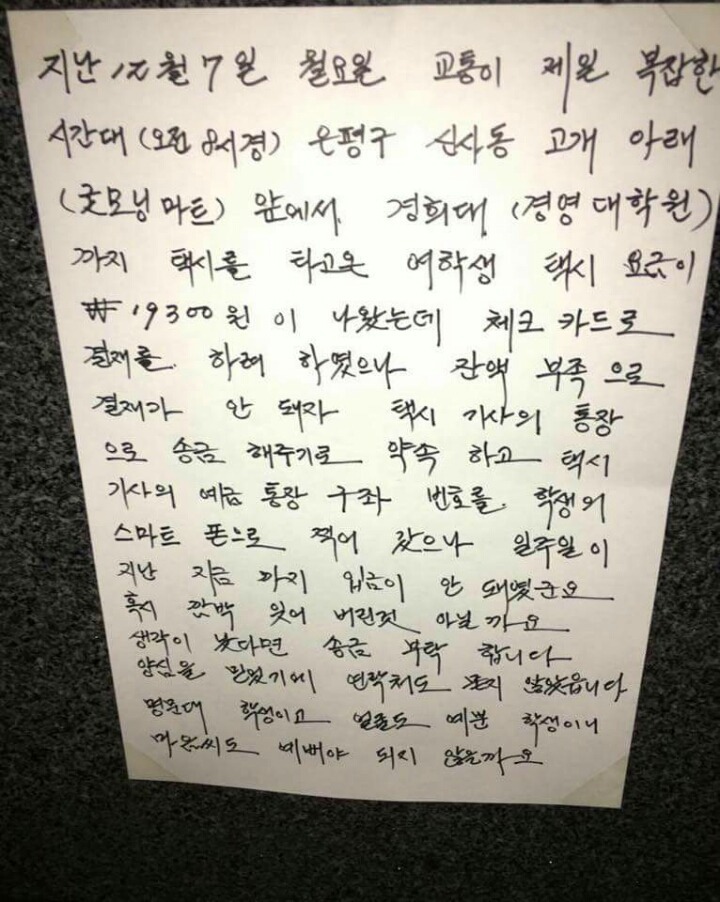 지난 12월 7일 월요일 교통이 제일 복잡한
시간대 (오전 8시경) 은평구 신사동 고개 아래
(굿모닝 마트) 앞에서 경희대 (경영 대학원)
까지 택시를 타고온 여학생 택시 요금이
₩ 19300원 이 나왔는데 체크 카드로
결재를 하려 하였으나 잔액 부족 으로
결재가 안 돼자 택시 기사의 통장
으로 송금 해주기로 약속 하고 택시
기사의 예금 통장 구좌 번호를 학생의
스마트 폰으로 찍어 갔으나 일주일이
지난 지금 까지 입금이 안 돼였군요
혹시 깜박 잊어 버린것 아닐까요
생각이 났다면 송금 부탁 합니다
양심을 믿었기에 연락처도 묻지 않았읍니다
명문대 학생이고 얼굴도 예쁜 학생이니
마음씨도 예뻐야 되지 않을까요